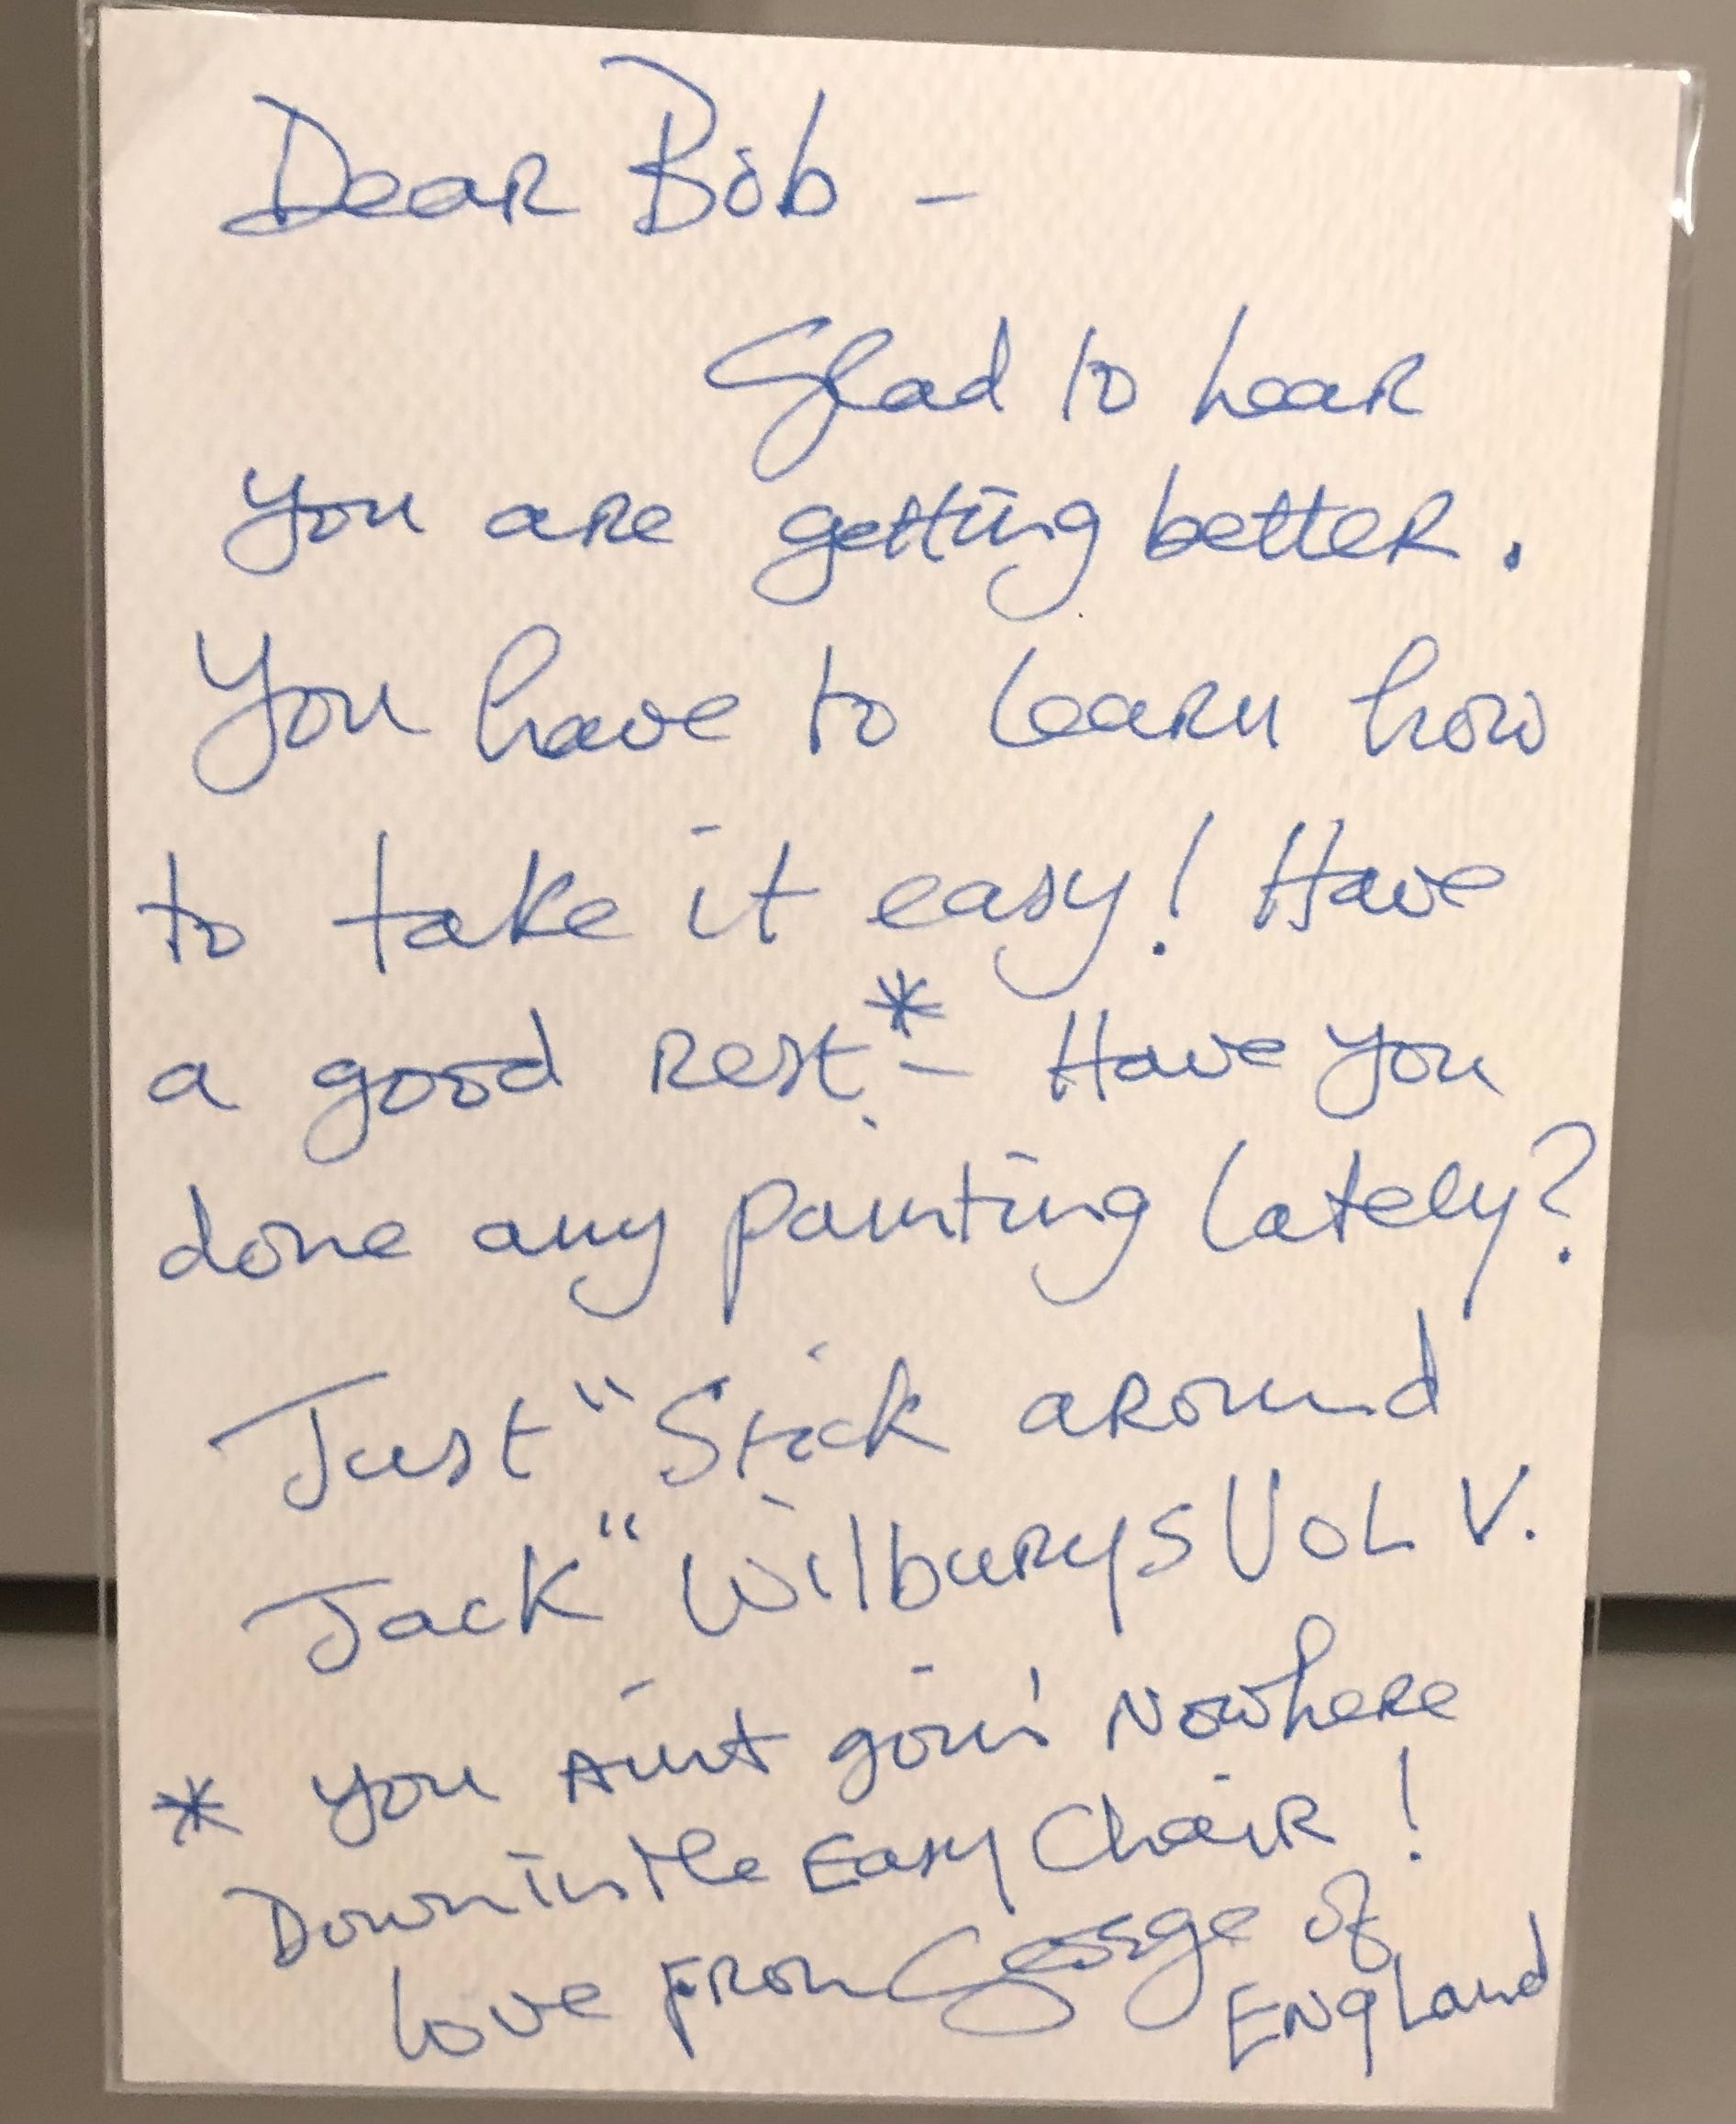 Dear Bob –
Glad to hear
you are getting better.
You have to learn how
to take it easy! Have
a good rest.* – Have you
done any painting lately?
Just "Stick around
Jack" Wilburys Vol V.
* you Aint goin' Nowhere
Down in the Easy Chair!
love from George of
England